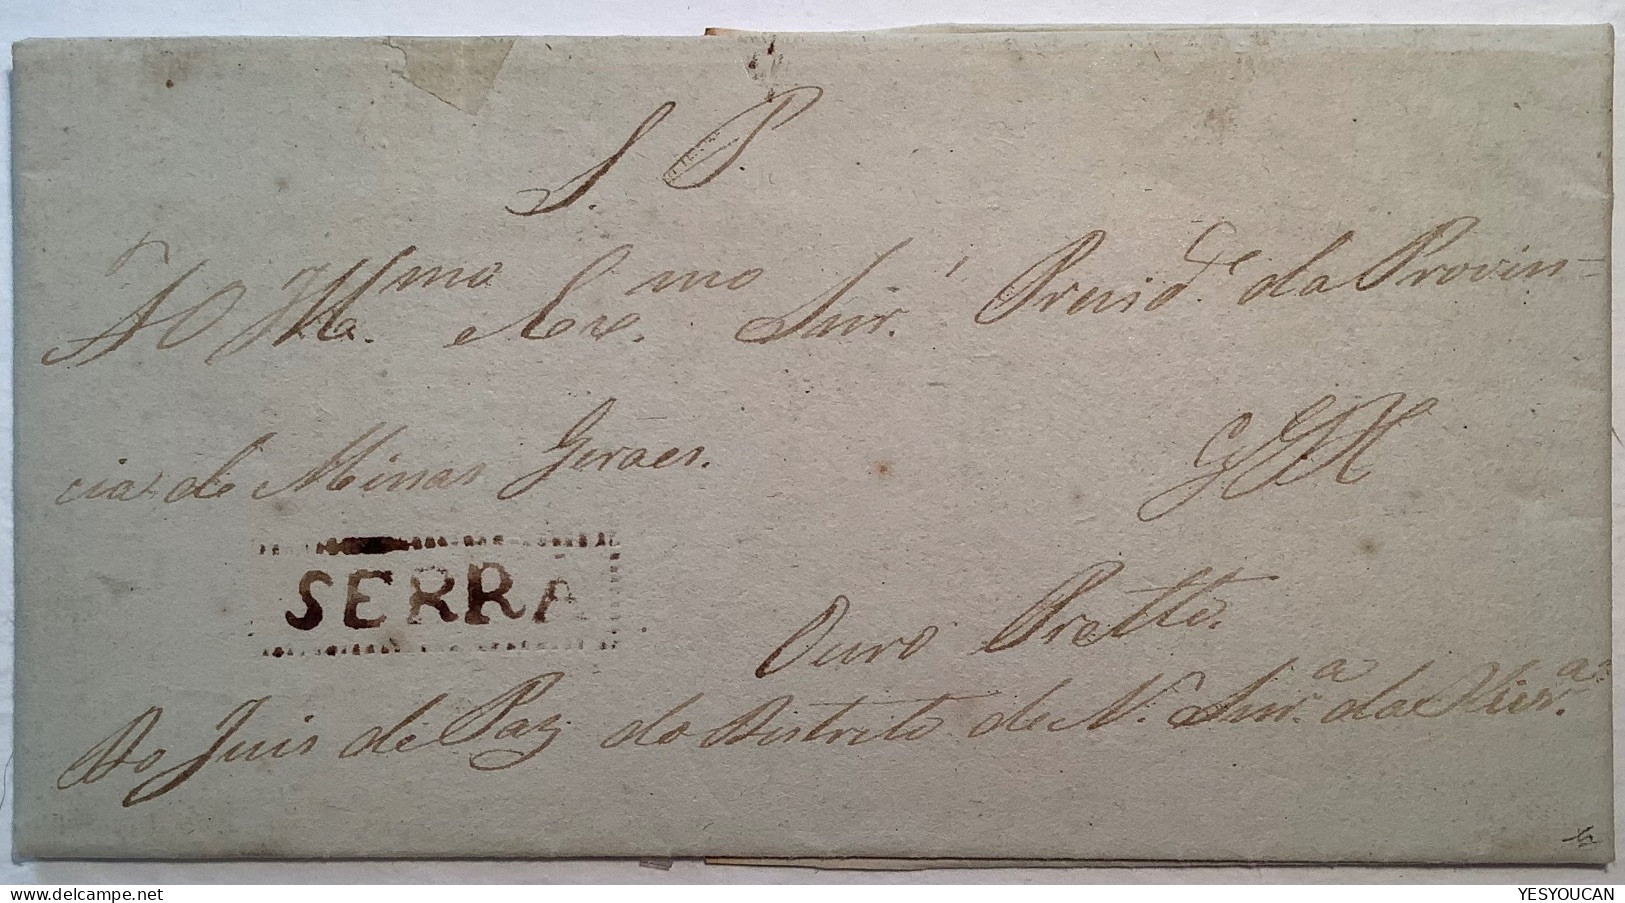 S. P.
Ao Illmo. e Exmo. Snr. Presid.e da Provin-
cia de Minas Geraes.
SERRA
Ouro Pretto.
Do Juis de Paz do Districto de N. Snr.a da
YESYOUCAN